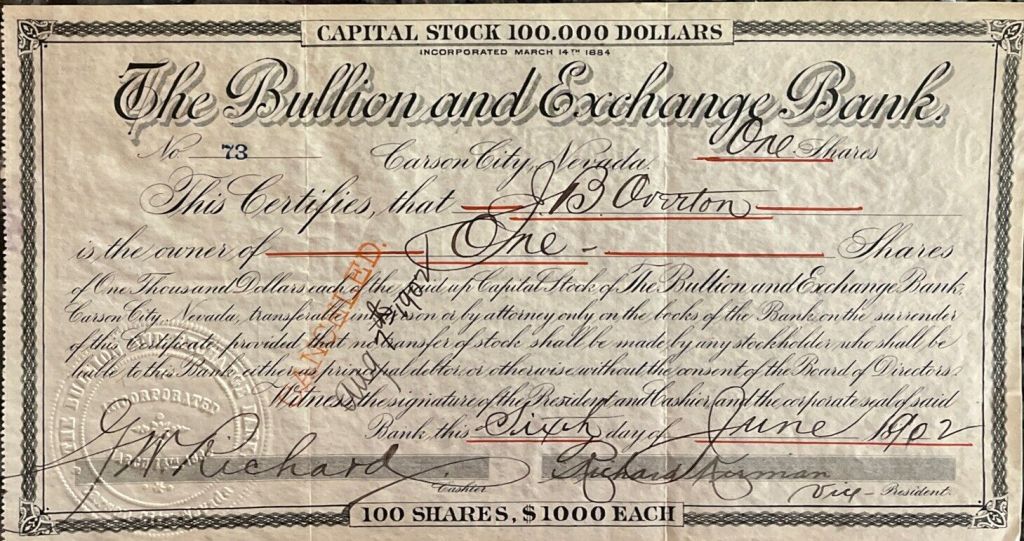 CAPITAL STOCK 100.000 DOLLARS
INCORPORATED MARCH 14TH 1884
The Bullion and Exchange Bank.
No. 73 Carson City, Nevada. One Shares
This Certifies, that J. B. Overton
is the owner of One Shares
of One Thousand Dollars each of the paid up Capital Stock of The Bullion and Exchange Bank,
Carson City, Nevada, transferable in person or by attorney only on the books of the Bank on the surrender
of this Certificate, provided that no transfer of stock shall be made by any stockholder who shall be
liable to this Bank either as principal debtor or otherwise without the consent of the Board of Directors.
Witness the signature of the President and Cashier and the corporate seal of said
Bank this Sixth day of June 1902
CANCELLED.
Aug 7th 1902
Richard Kirman
Cashier Vice-President.
THE BULLION EXCHANGE BANK
INCORPORATED
100 SHARES, $1000 EACH